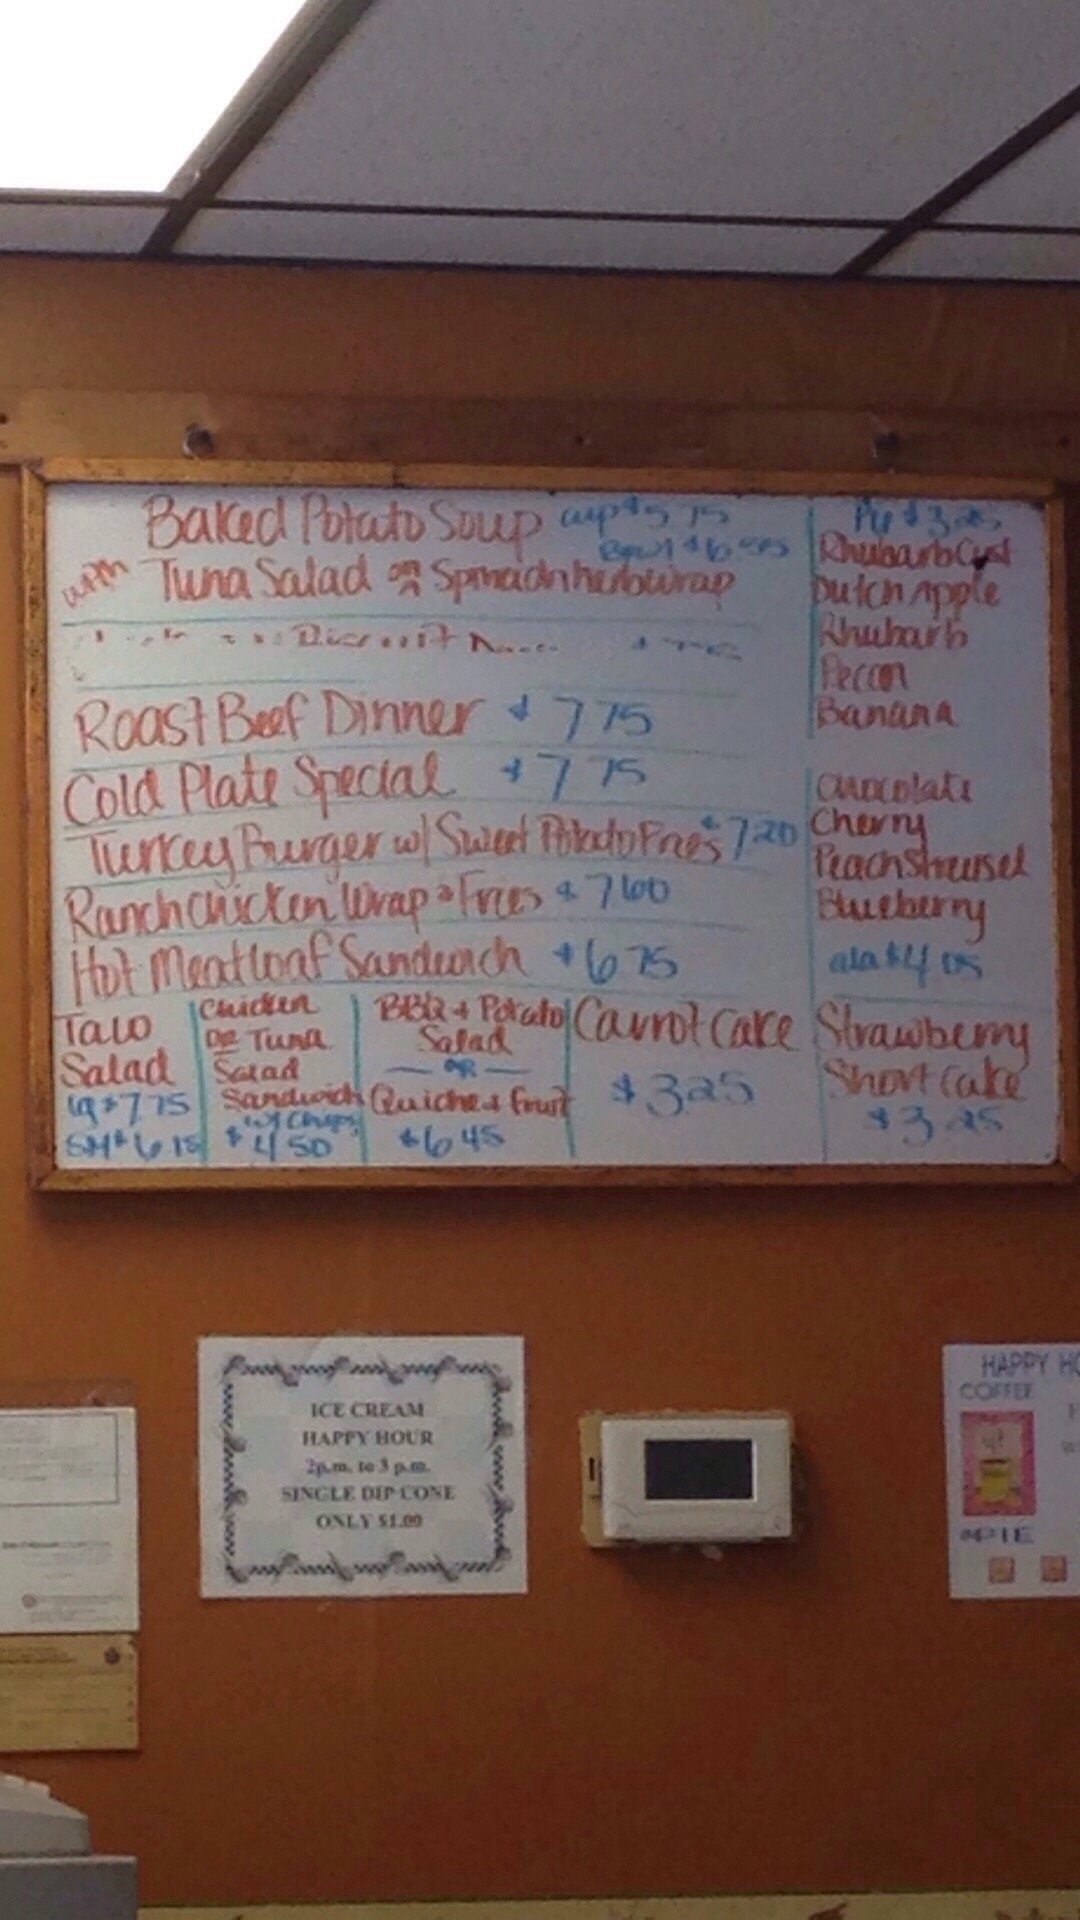 Baked Potato Soup cup $5 75
Bowl $6
with Tuna Salad on a Spinach herb wrap
Roast Beef Dinner $7 75
Cold Plate Special $7 75
Turkey Burger w/ Sweet Potato Fries $7 20
Ranch Chicken Wrap & Fries $7 60
Hot Meatloaf Sandwich $6 75
Taco
Salad
lg $7 75
SM $6 15
Chicken
or Tuna
Salad
Sandwich
w/ Chips
$4 50
BBQ & Potato
Salad
— OR —
Quiche & Fruit
$6 45
Carrot Cake
$3 25
Pie $3 25
Rhubarb Cust
Dutch Apple
Rhubarb
Pecan
Banana
Chocolate
Cherry
Peach Streusel
Blueberry
ala $4 05
Strawberry
Short Cake
$3 25
ICE CREAM
HAPPY HOUR
2p.m. to 3 p.m.
SINGLE DIP CONE
ONLY $1.00
HAPPY HO
COFFEE
PIE